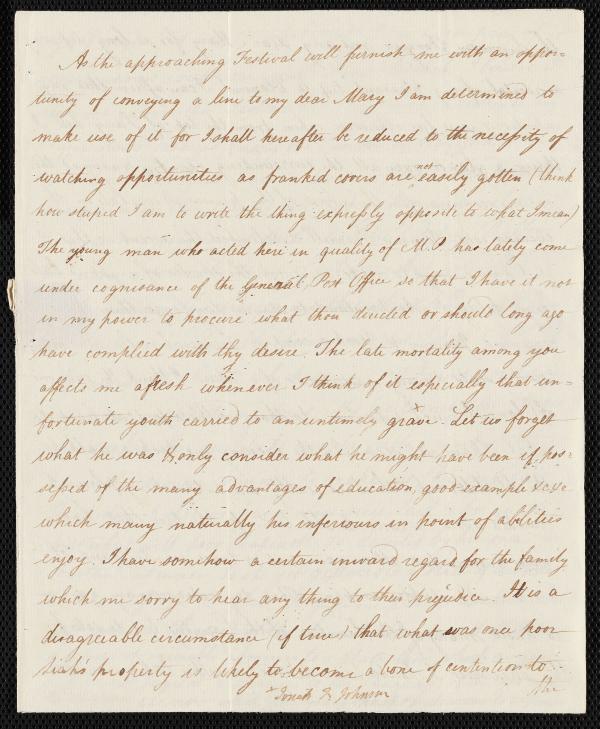 As the approaching Festival will furnish me with an oppor=
tunity of conveying a line to my dear Mary I am determined to
make use of it for I shall hereafter be reduced to the necessity of
watching opportunities as franked covers are not easily gotten (think
how stupid I am to write the thing expressly opposite to what I mean)
The young man who acted here in quality of M.P. has lately come
under cognisance of the General Post Office so that I have it not
in my power to procure what thou decided or should long ago
have complied with thy desire. The late mortality among you
affects me afresh whenever I think of it especially that un=
fortunate youth carried to an untimely grave x. Let us forget
what he was & only consider what he might have been if pos=
sessed of the many advantages of education, good example &c &c
which many naturally his inferiours in point of abilities
enjoy. I have somehow a certain inward regard for the family
which me sorry to hear any thing to their prejudice. It is a
disagreeable circumstance (if true) that what was once poor
property is likely to become a bone of contention to
x Johnson
the